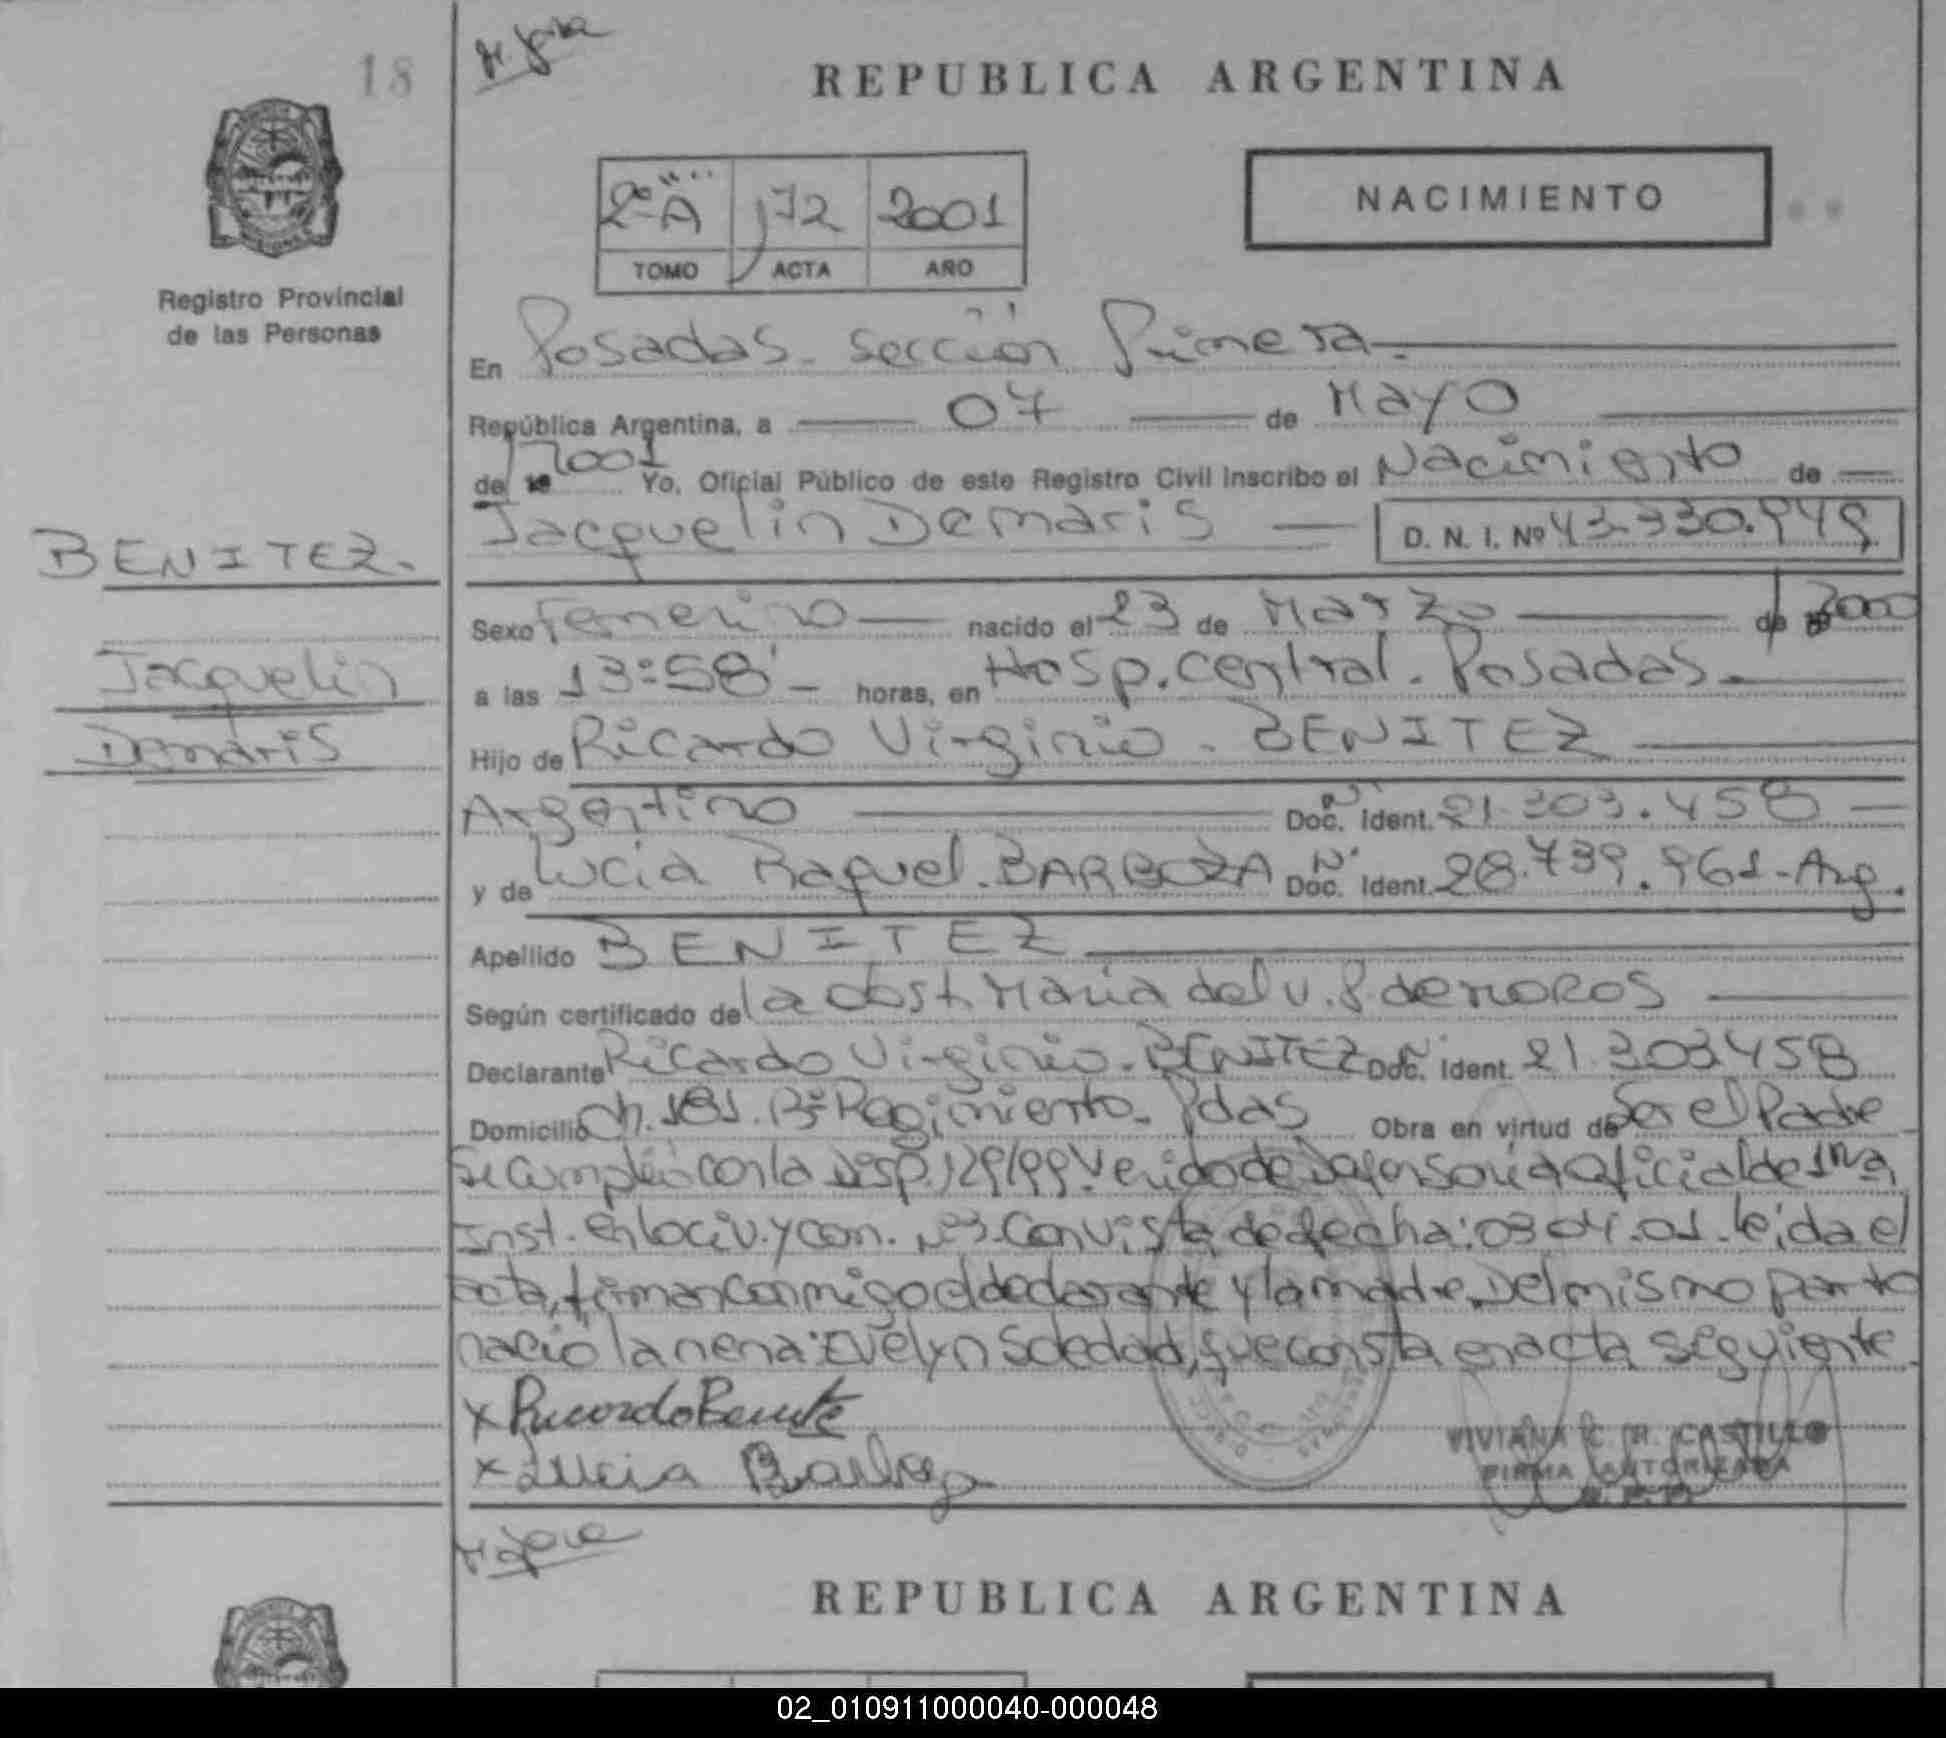 18
REPUBLICA ARGENTINA
2º "A" 172 2001
TOMO ACTA AÑO
NACIMIENTO
Registro Provincial
de las Personas
En Posadas. sección Primera.
República Argentina, a 04 de Mayo
de 2001 Yo, Oficial Público de este Registro Civil inscribo el Nacimiento de
Jacquelin Demaris D. N. I. Nº 43.330.949
BENITEZ.
Jacquelin
Demaris
Sexo Femenino nacido el 23 de Marzo de 2000
a las 13:58 horas, en Hosp. central. Posadas.
Hijo de Ricardo Virginio. BENITEZ
Argentino Doc. Ident. 21.303.458
y de Lucia Raquel. BARBOZA Doc. Ident. 28.739.961-Arg.
Apellido BENITEZ
Según certificado de la obst. Maria del V. P. de MOROS
Declarante Ricardo Virginio. BENITEZ Doc. Ident. 21.303.458
Domicilio Ch. 181. Bº Regimiento. Pdas Obra en virtud de Ser el Padre
Se cumplió con la Disp. 129/99 Venido de Defensoria Oficial de 1ra
Inst. en lo civ. y com. Nº3. Con vista de fecha: 03.04.01. leida el
acta, firman conmigo el declarante y la madre. Del mismo parto
nació la nena: Evelyn Soledad, que consta en acta siguiente.
x Ricardo Benitez
x Lucia Barboza
VIVIANA C. R. CASTILLO
FIRMA AUTORIZADA
REPUBLICA ARGENTINA
02_010911000040-000048